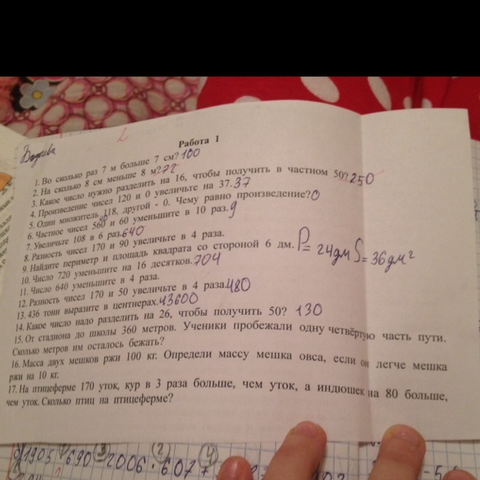 Работа 1
1. Во сколько раз 7 м больше 7 см? 100
2. На сколько 8 см меньше 8 м?
3. Какое число нужно разделить на 16, чтобы получить в частном 50? 250
4. Произведение чисел 120 и 0 увеличьте на 37. 37
5. Один множитель 118, другой - 0. Чему равно произведение? 0
6. Частное чисел 560 и 60 уменьшите в 10 раз. 9
7. Увеличьте 108 в 6 раз. 640
8. Разность чисел 170 и 90 увеличьте в 4 раза.
9. Найдите периметр и площадь квадрата со стороной 6 дм. P = 24дм S = 36дм²
10. Число 720 уменьшите на 16 десятков. 704
11. Число 640 уменьшите в 4 раза.
12. Разность чисел 170 и 50 увеличьте в 4 раза. 480
13. 436 тонн выразите в центнерах. 43600
14. Какое число надо разделить на 26, чтобы получить 50? 130
15. От стадиона до школы 360 метров. Ученики пробежали одну четвёртую часть пути.
Сколько метров им осталось бежать?
16. Масса двух мешков ржи 100 кг. Определи массу мешка овса, если он легче мешка
ржи на 10 кг.
17. На птицеферме 170 уток, кур в 3 раза больше, чем уток, а индюшек на 80 больше,
чем уток. Сколько птиц на птицеферме?